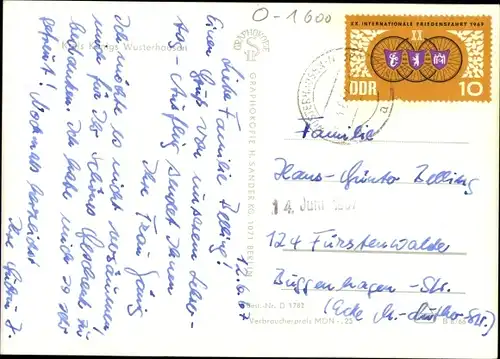 O-1600
XX. INTERNATIONALE FRIEDENSFAHRT 1967
XX
DDR 10
Kreis Königs Wusterhausen
GRAPHOKOPIE
GRAPHOKOPIE H. SANDER KG, 1071 BERLIN
Best.-Nr. D 1782
Verbraucherpreis MDN -,25
12.6.67
Liebe Familie Belling!
Einen Gruß von unserem Lehrer-
Ausflug sendet Ihnen
Ihre Frau
Ich möchte es nicht versäumen
mich für das schöne Geschenk zu
bedanken. Ich habe mich so sehr
gefreut! Nochmals herzlichst
Ihre
Familie
Hans-Günter Belling
14. Juni 1967
124 Fürstenwalde
Buggenhagen-Str.
(Ecke M.-Luther-Str.)